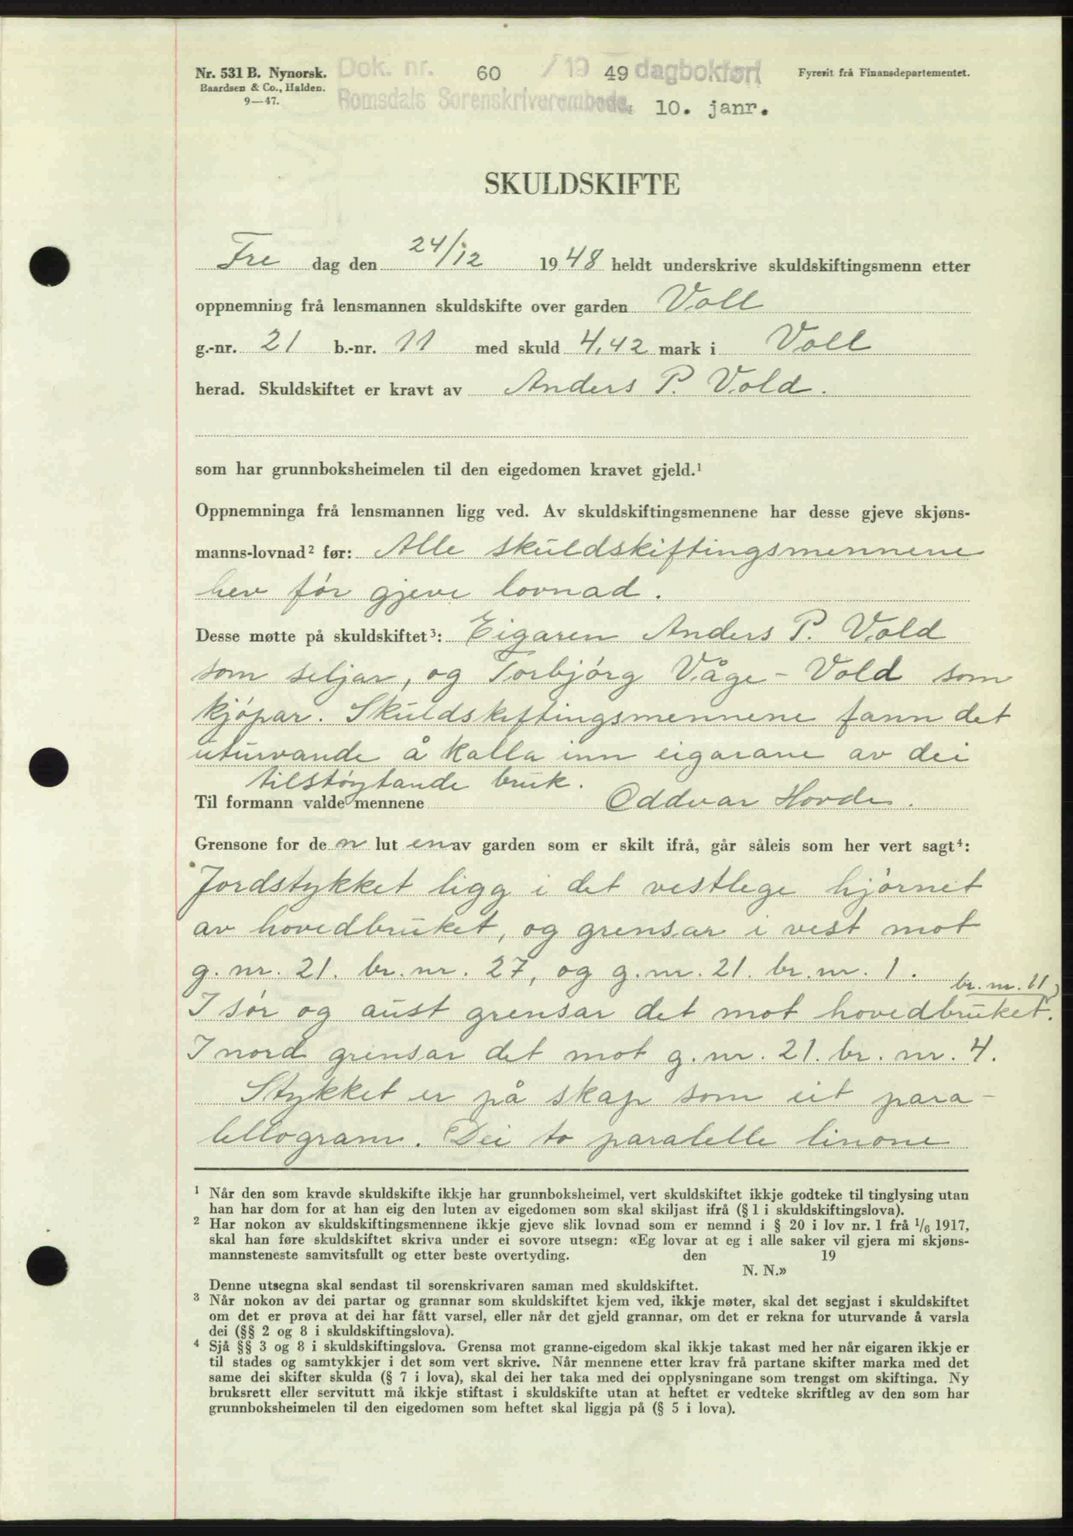 Nr. 531 B. Nynorsk.
Baardsen & Co., Halden.
9—47.
Dok. nr. 60 /19 49 dagbokført
Romsdals Sorenskriverembede, 10. janr.
Fyresit frå Finansdepartementet.
SKULDSKIFTE
Fre dag den 24/12 1948 heldt underskrive skuldskiftingsmenn etter
oppnemning frå lensmannen skuldskifte over garden Voll
g.-nr. 21 b.-nr. 11 med skuld 4,42 mark i Voll
herad. Skuldskiftet er kravt av Anders P. Vold.
som har grunnboksheimelen til den eigedomen kravet gjeld.¹
Oppnemninga frå lensmannen ligg ved. Av skuldskiftingsmennene har desse gjeve skjøns-
manns-lovnad² før: Alle skuldskiftingsmennene
hev før gjeve lovnad.
Desse møtte på skuldskiftet³: Eigaren Anders P. Vold
som seljar, og Torbjørg Våge-Vold som
kjøpar. Skuldskiftingsmennene fann det
uturvande å kalla inn eigarane av dei
tilstøytande bruk.
Til formann valde mennene Oddvar Hovde.
Grensone for den luten av garden som er skilt ifrå, går såleis som her vert sagt⁴:
Jordstykket ligg i det vestlege hjørnet
av hovedbruket, og grensar i vest mot
g. nr. 21. br. nr. 27, og g. nr. 21. br. nr. 1.
br. nr. 11,
I sør og aust grensar det mot hovedbruket.
I nord grensar det mot g. nr. 21. br. nr. 4.
Stykket er på skap som eit para-
lellogram. Dei to paralelle linone
¹ Når den som kravde skuldskifte ikkje har grunnboksheimel, vert skuldskiftet ikkje godteke til tinglysing utan
han har dom for at han eig den luten av eigedomen som skal skiljast ifrå (§ 1 i skuldskiftingslova).
² Har nokon av skuldskiftingsmennene ikkje gjeve slik lovnad som er nemnd i § 20 i lov nr. 1 frå 1/6 1917,
skal han føre skuldskiftet skriva under ei sovore utsegn: «Eg lovar at eg i alle saker vil gjera mi skjøns-
mannsteneste samvitsfullt og etter beste overtyding. den 19
N. N.»
Denne utsegna skal sendast til sorenskrivaren saman med skuldskiftet.
³ Når nokon av dei partar og grannar som skuldskiftet kjem ved, ikkje møter, skal det segjast i skuldskiftet
om det er prøva at dei har fått varsel, eller når det gjeld grannar, om det er rekna for uturvande å varsla
dei (§§ 2 og 8 i skuldskiftingslova).
⁴ Sjå §§ 3 og 8 i skuldskiftingslova. Grensa mot granne-eigedom skal ikkje takast med her når eigaren ikkje er
til stades og samtykkjer i det som vert skrive. Når mennene etter krav frå partane skifter marka med det
same dei skifter skulda (§ 7 i lova), skal dei her taka med dei opplysningane som trengst om skiftinga. Ny
bruksrett eller servitutt må ikkje stiftast i skuldskifte utan at heftet er vedteke skriftleg av den som har
grunnboksheimelen til den eigedomen som heftet skal liggja på (§ 5 i lova).